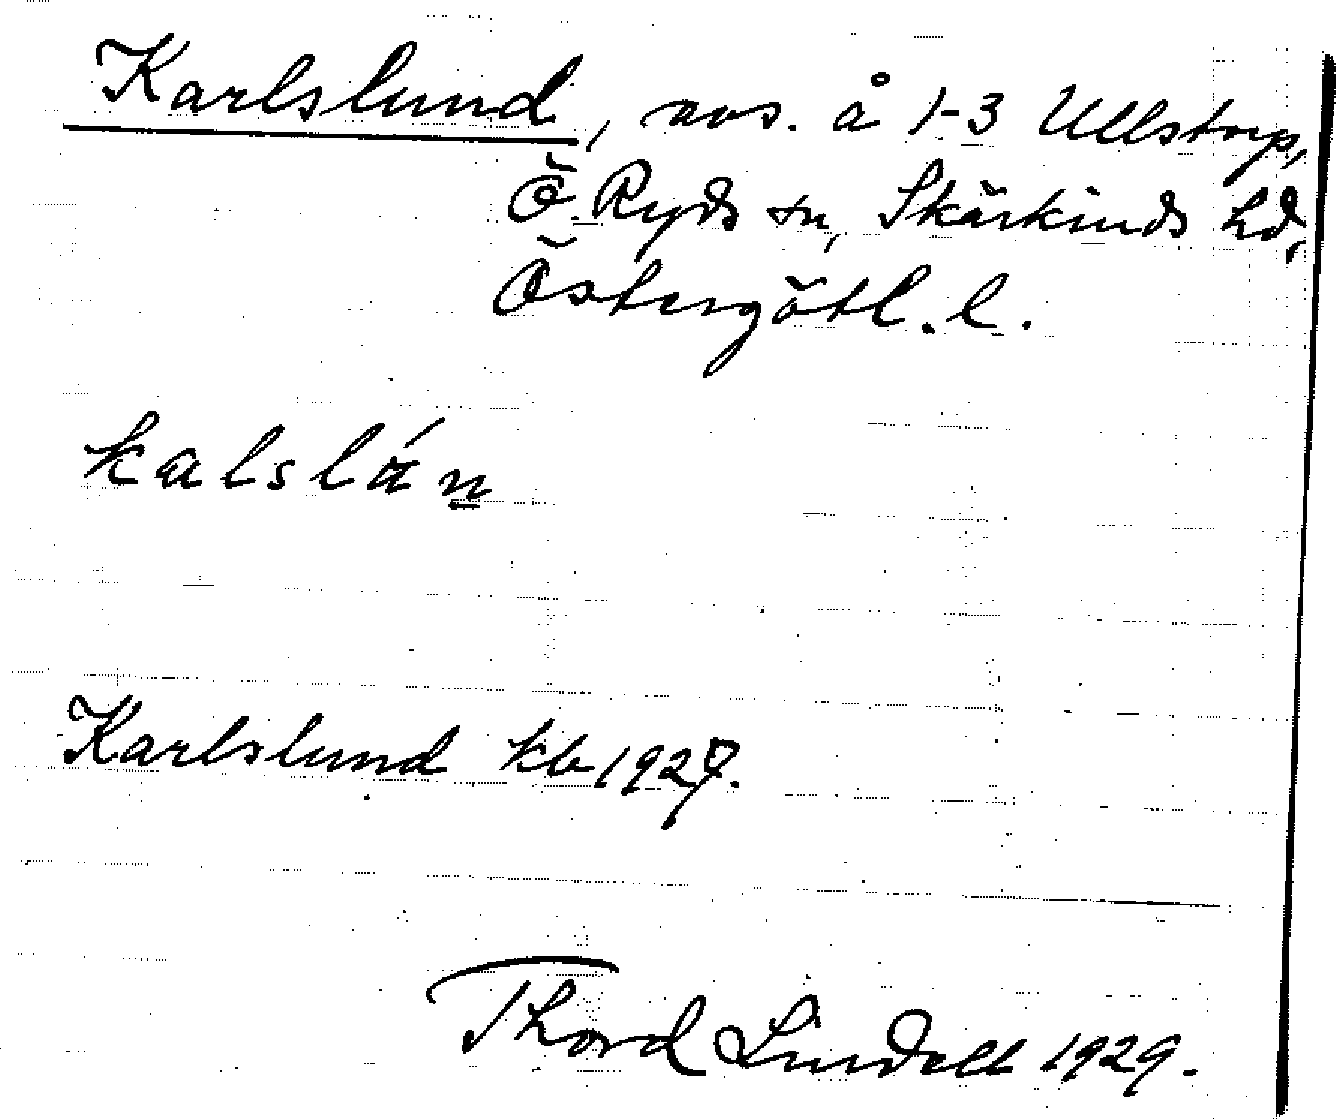 Karlslund, avs. å 1-3 Ullstorp,
Ö. Ryds sn, Skärkinds hd,
Östergötl. l.
kalslán
Karlslund kb 1927.
Thord Lindell 1929.